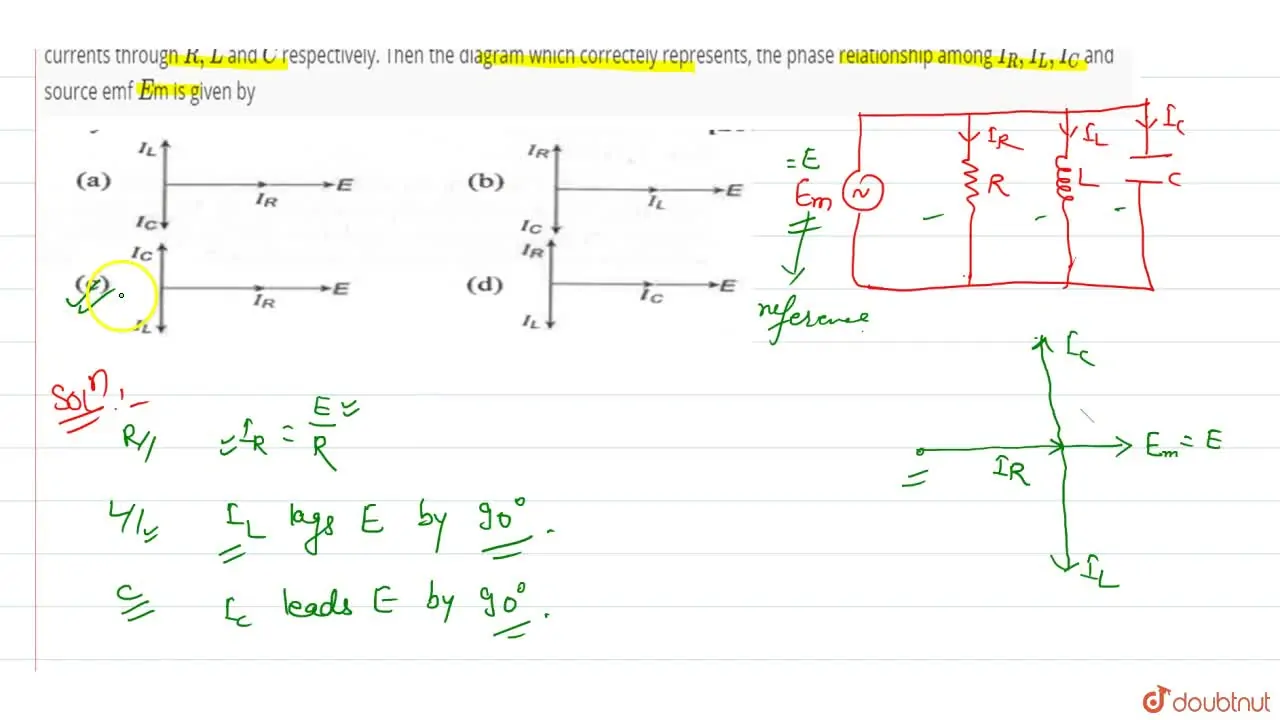 currents through R, L and C respectively. Then the diagram which correctely represents, the phase relationship among I_R, I_L, I_C and
source emf Em is given by
(a) I_L I_C I_R E
(b) I_R I_C I_L E
(c) I_C I_L I_R E
(d) I_R I_L I_C E
= E
Em
I_R R
I_L L
I_C C
reference
Solⁿ :-
R// I_R = E/R
L// I_L lags E by 90°.
C I_C leads E by 90°.
I_C
I_R Em = E
I_L
doubtnut